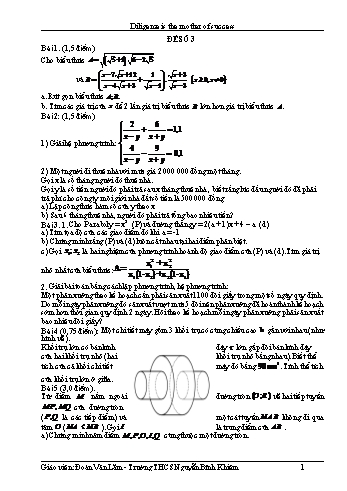 Diligence is the mother of success
ĐỀ SỐ 3
Bài 1. (1,5 điểm)
Cho biểu thức
a. Rút gọn biểu thức A, B.
b. Tìm các giá trị của x để 2 lần giá trị biểu thức B lớn hơn giá trị biểu thức A.
Bài 2: (1,5 điểm)
1) Giải hệ phương trình:
2) Một người đi thuê nhà với mức giá 2 000 000 đồng một tháng.
Gọi x là số tháng người đó thuê nhà.
Gọi y là số tiền người đó phải trả sau x tháng thuê nhà, biết rằng lúc đầu người đó đã phải
trả phí cho công ty môi giới nhà đất số tiền là 500 000 đồng
a) Lập công thức hàm số của y theo x
b) Sau 6 tháng thuê nhà, người đó phải trả tổng bao nhiêu tiền?
Bài 3. 1. Cho Parabol y = x² (P) và đường thẳng y = 2(a+1)x + 4 – a (d)
a) Tìm tọa độ của các giao điểm đó khi a = -1
b) Chứng minh rằng (P) và (d) luôn cắt nhau tại hai điểm phân biệt.
c) Gọi x₁, x₂ là hai nghiệm của phương trình hoành độ giao điểm của (P) và (d). Tìm giá trị
nhỏ nhất của biểu thức:
2. Giải bài toán bằng cách lập phương trình, hệ phương trình:
Một phân xưởng theo kế hoạch cần phải sản xuất 1100 đôi giày trong một số ngày quy định.
Do mỗi ngày phân xưởng đó sản xuất vượt mức 5 đôi nên phân xưởng đã hoàn thành kế hoạch
sớm hơn thời gian quy định 2 ngày. Hỏi theo kế hoạch mỗi ngày phân xưởng phải sản xuất
bao nhiêu đôi giày?
Bài 4 (0,75 điểm): Một chi tiết máy gồm 3 khối trụ có cùng chiều cao h gắn với nhau (như
hình vẽ).
Khối trụ lớn có bán kính đáy r lớn gấp đôi bán kính đáy
của hai khối trụ nhỏ (hai khối trụ nhỏ bằng nhau). Biết thể
tích của cả khối chi tiết máy đó bằng Tính thể tích
của khối trụ lớn ở giữa.
Bài 5 (3,0 điểm).
Từ điểm M nằm ngoài đường tròn (O;R) vẽ hai tiếp tuyến
MP, MQ của đường tròn
(P, Q là các tiếp điểm) và một cát tuyến MAB không đi qua
tâm O (MA < MB). Gọi I là trung điểm của AB.
a) Chứng minh năm điểm M, P, O, I, Q cùng thuộc một đường tròn.
Giáo viên: Đoàn Văn Lâm - Trường THCS Nguyễn Bỉnh Khiêm 1